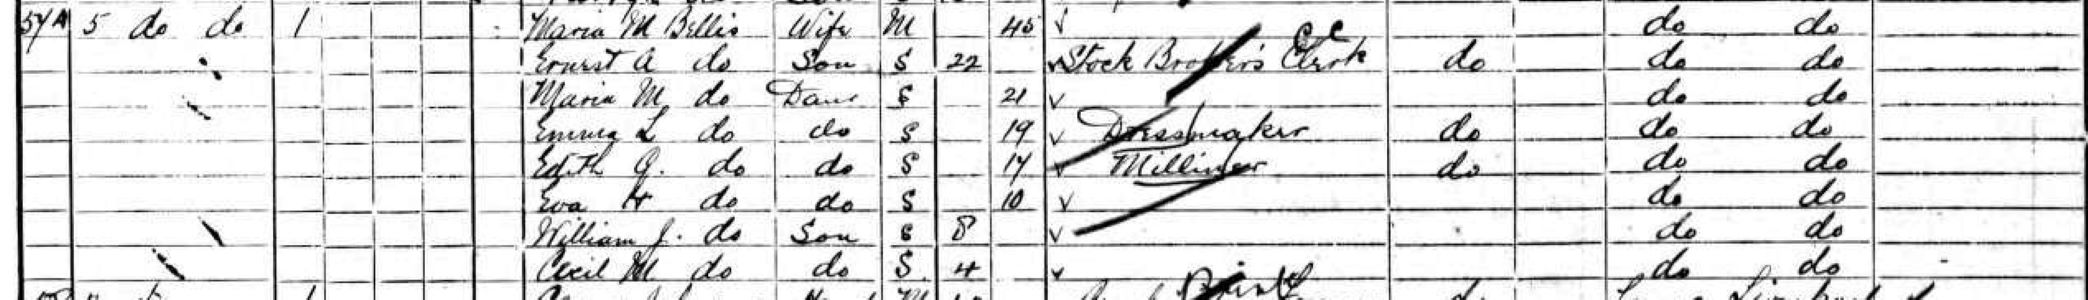 57A 5 do do 1 Maria M Bellis Wife M 45 do do
Ernest A do Son S 22 Stock Broker's Clerk do do do
Maria M do Daur S 21 do do
Emma L do do S 19 Dressmaker do do do
Edith G. do do S 17 Milliner do do do
Eva H do do S 10 do do
William J. do Son S 8 do do
Cecil M do do S 4 do do